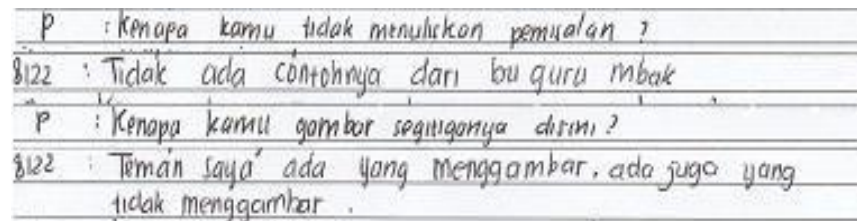 P : Kenapa kamu tidak menuliskan pemisalan ?
S122 : Tidak ada contohnya dari bu guru mbak
P : Kenapa kamu gambar segitiganya disini ?
S122 : Teman saya ada yang menggambar, ada juga yang
tidak menggambar .